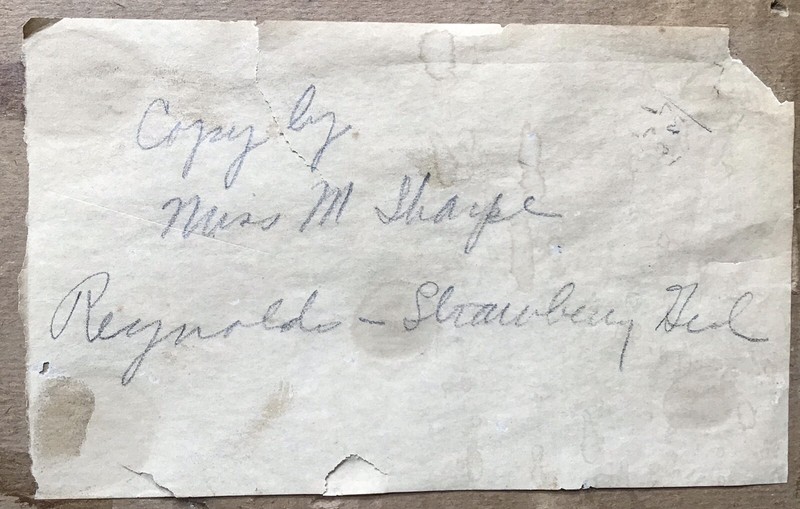 Copy by
Miss M Sharpe
Reynolds – Strawberry Girl